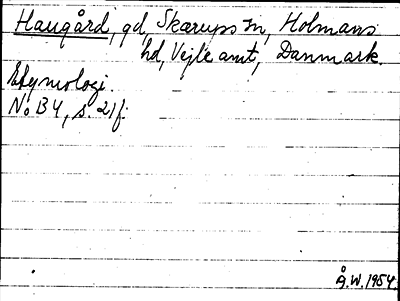 Haugård, gd, Skærups sn, Holmans
hd, Vejle amt, Danmark.
Etymologi.
NoB 4, s. 21f.
Å.W. 1954.